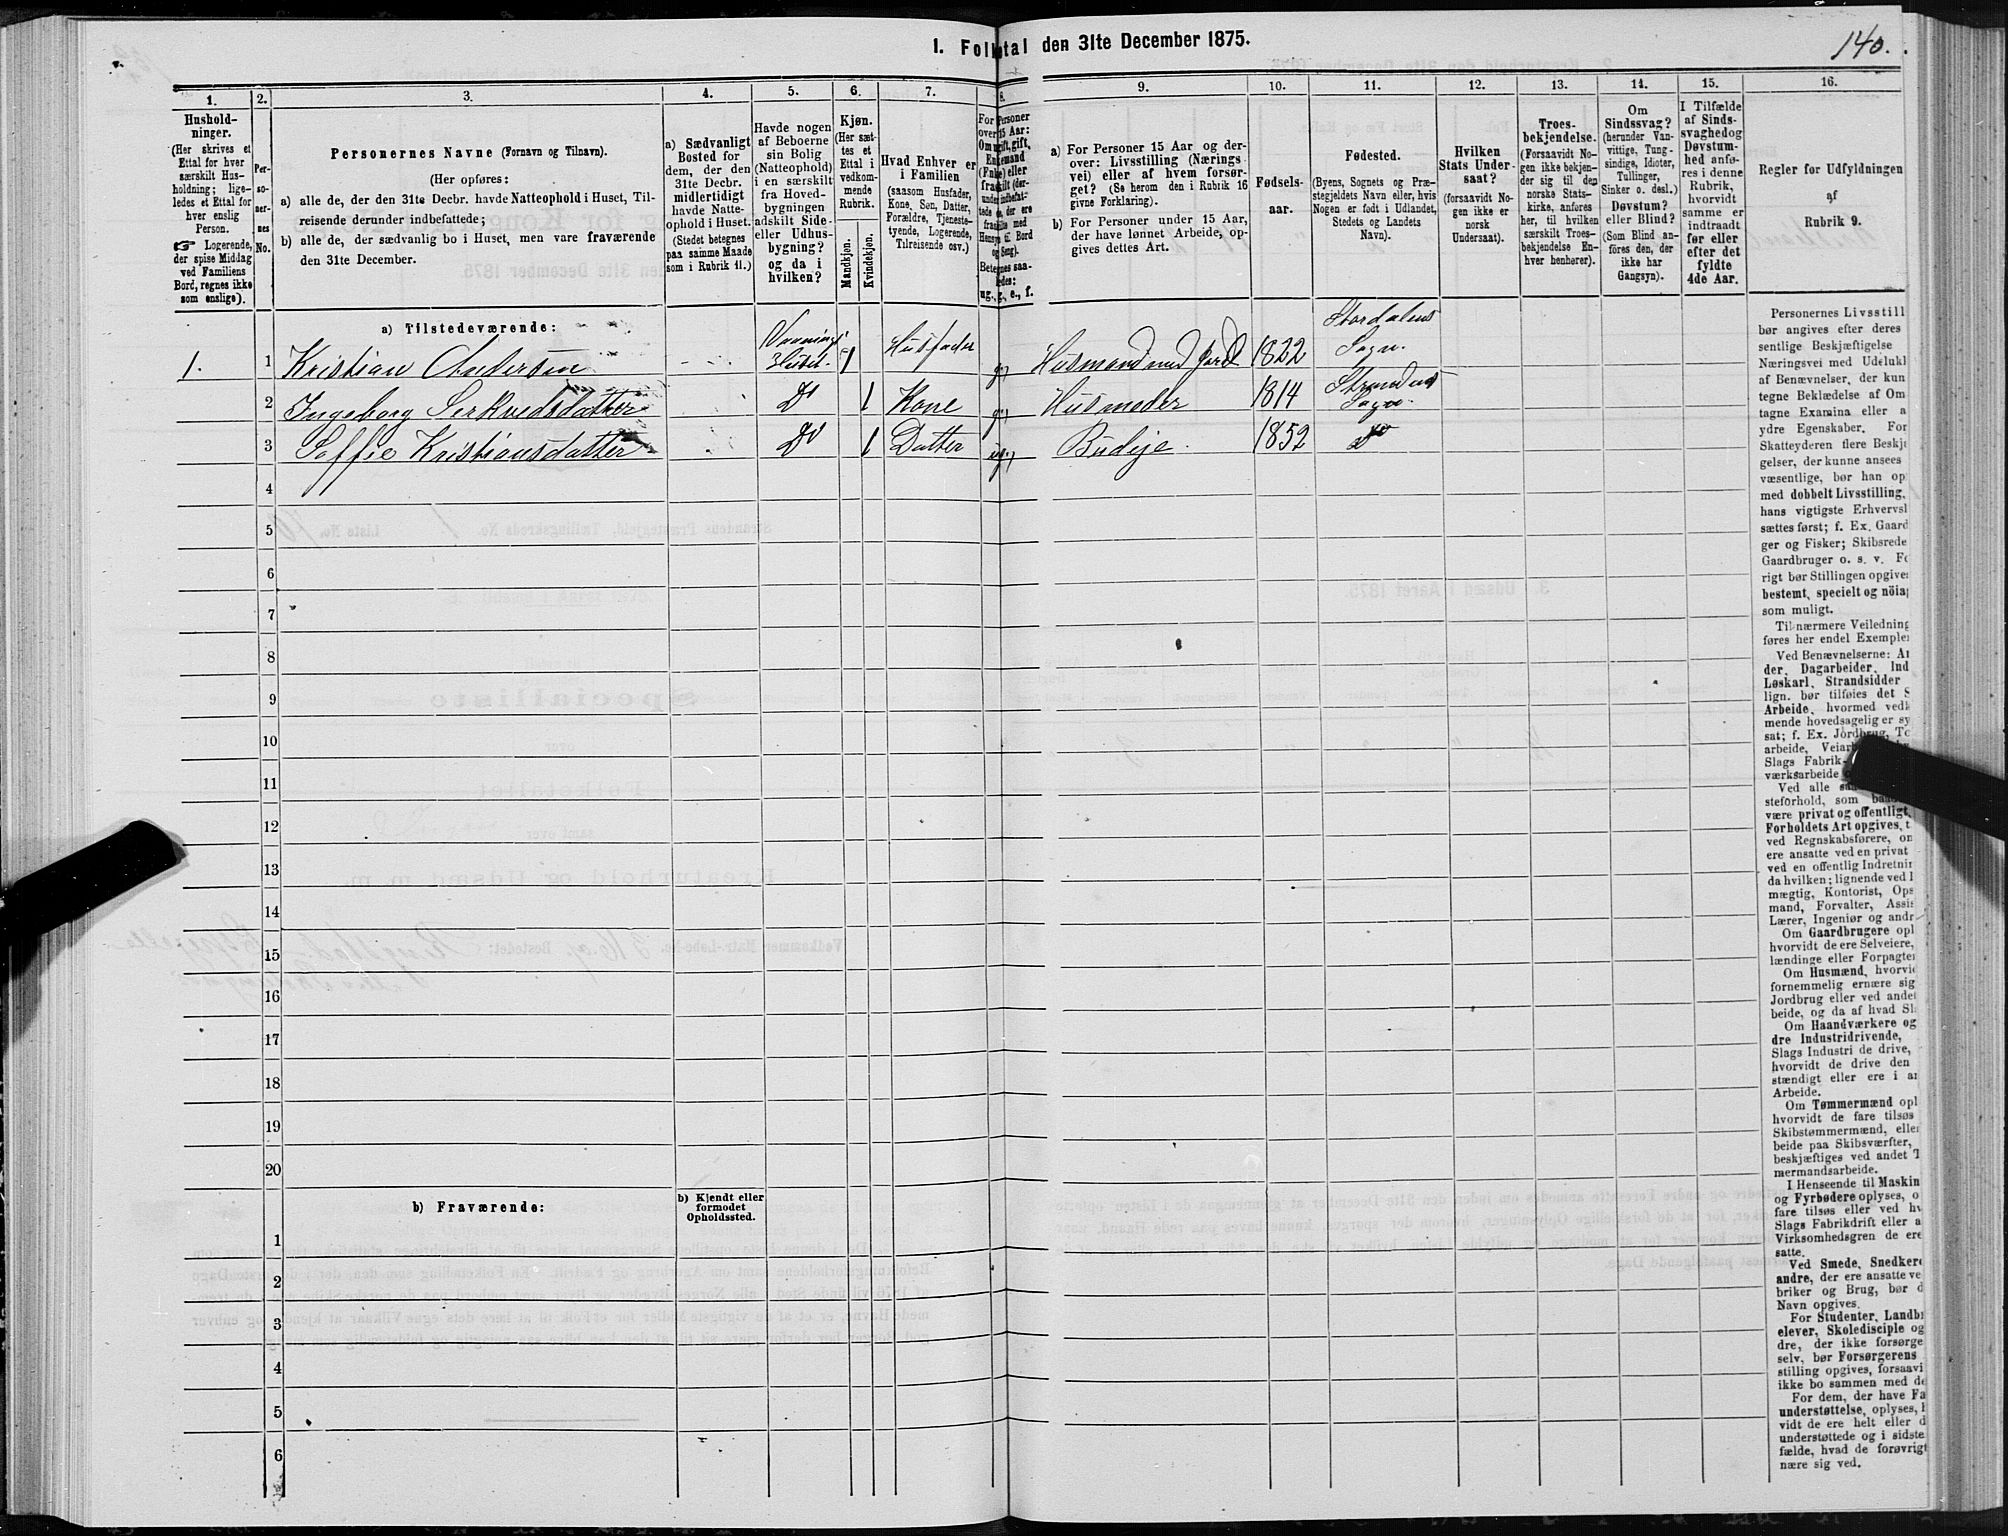 1. Folketal den 31te December 1875.
140.
1.
2.
3.
4.
5.
6.
7.
8.
9.
10.
11.
12.
13.
14.
15.
16.
Hushold-
ninger.
(Her skrives et
Ettal for hver
særskilt Hus-
holdning; lige-
ledes et Ettal for
hver enslig
Person.
☞ Logerende,
der spise Middag
ved Familiens
Bord, regnes ikke
som enslige).
Per-
so-
ner-
nes
No.
Personernes Navne (Fornavn og Tilnavn).
(Her opføres:
a) alle de, der den 31te Decbr. havde Natteophold i Huset, Til-
reisende derunder indbefattede;
b) alle de, der sædvanlig bo i Huset, men vare fraværende
den 31te December.
a) Sædvanligt
Bosted for
dem, der den
31te Decbr.
midlertidigt
havde Natte-
ophold i Huset.
(Stedet betegnes
paa samme Maade
som i Rubrik 11.)
Havde nogen
af Beboerne
sin Bolig
(Natteophold)
i en særskilt
fra Hoved-
bygningen
adskilt Side-
eller Udhus-
bygning?
og da i
hvilken?
Kjøn.
(Her sæt-
tes et
Ettal i
vedkom-
mende
Rubrik.
Mandkjøn.
Kvindekjøn.
Hvad Enhver er
i Familien
(saasom Husfader,
Kone, Søn, Datter,
Forældre, Tjeneste-
tyende, Logerende,
Tilreisende osv.)
For Personer
over 15 Aar:
ug., g., e., f.
a) For Personer 15 Aar og der-
over: Livsstilling (Nærings-
vei) eller af hvem forsør-
get? (Se herom den i Rubrik 16
givne Forklaring).
b) For Personer under 15 Aar,
der have lønnet Arbeide, op-
gives dettes Art.
Fødsels-
aar.
Fødested.
(Byens, Sognets og Præ-
stegjeldets Navn eller, hvis
Nogen er født i Udlandet,
Stedets og Landets
Navn).
Hvilken
Stats Under-
saat?
(forsaavidt No-
gen ikke er
norsk
Undersaat).
Troes-
bekjendelse.
(Forsaavidt No-
gen ikke bekjen-
der sig til den
norske Stats-
kirke, anføres
her, til hvilken
særskilt Troes-
bekjendelse En-
hver henhører).
Om
Sindssvag?
(herunder Van-
vittige, Tung-
sindige, Idioter,
Tullinger,
Sinker o. desl.)
Døvstum?
eller Blind?
(Som Blind an-
føres den, der
ikke har
Gangsyn).
I Tilfælde
af Sinds-
svaghed og
Døvstum-
hed anfø-
res i denne
Rubrik,
hvorvidt
samme er
indtraadt
før eller
efter det
fyldte
4de Aar.
Regler for Udfyldningen
af
Rubrik 9.
a) Tilstedeværende:
1. 1 Kristian Andersen Vaanings Huset. 1 Husfader g., Husmand med Jord 1822 Stordalens Sogn.
2 Ingeborg Serkvedsdatter Do 1 Kone g., Husmoder 1814 Strandens Sogn.
3 Soffie Kristiansdatter Do 1 Datter ug., Budeje. 1852 Do
4
5
6
7
8
9
10
11
12
13
14
15
16
17
18
19
20
b) Fraværende:
b) Kjendt eller
formodet
Opholdssted.
1
2
3
4
5
6
Personernes Livsstill
bør angives efter deres
sentlige Beskjæftigelse
Næringsvei med Udelukl
af Benævnelser, der kun
tegne Beklædelse af Om
tagne Examina eller a
ydre Egenskaber. For
Skatteyderen flere Beskj
gelser, der kunne ansees
væsentlige, bør han op
med dobbelt Livsstilling,
hans vigtigste Erhvervsl
sættes først; f. Ex. Gaard
ger og Fisker; Skibsrede
Gaardbruger o. s. v. Fo
rigt bør Stillingen opgives
bestemt, specielt og nöia
som muligt.
Til nærmere Veiledning
føres her endel Exempler
Ved Benævnelserne: Ar
der, Dagarbeider, Ind
Løskarl, Strandsidder
lign. bør tilføies det S
Arbeide, hvormed vedk
mende hovedsagelig er sy
sat; f. Ex. Jordbrug, To
arbeide,
Slags Fabrik-
værksarbeide
Ved alle
steforhold, som
være privat og offentligt,
Forholdets Art opgives, t
ved Regnskabsførere, on
ere ansatte ved en privat
ved en offentlig Indretnin
da hvilken; lignende ved l
mægtig, Kontorist, Ops
mand, Forvalter, Assis
Lærer, Ingeniør og andr
Om Gaardbrugere opl
hvorvidt de ere Selveiere,
lændinge eller Forpagter
Om Husmænd, hvorvi
fornemmelig ernære sig
Jordbrug eller ved andet
beide, og da af hvad Sl
Om Haandværkere og
dre Industridrivende,
Slags Industri de drive,
hvorvidt de drive den
stændigt eller ere i an
Arbeide.
Om Tømmermænd opl
hvorvidt de fare tilsøs
Skibstømmermænd, eller
beide paa Skibsværfter,
beskjæftiges ved andet T
mermandsarbeide.
I Henseende til Maskin
og Fyrbødere oplyses, o
fare tilsøs eller ved hv
Slags Fabrikdrift eller a
Virksomhedsgren de ere
satte.
Ved Smede, Snedkere
andre, der ere ansatte ve
briker og Brug, bør d
Navn opgives.
For Studenter, Landbr
elever, Skoledisciple og
dre, der ikke forsørge
selv, bør Forsørgerens
stilling opgives, forsaavi
ikke bo sammen med de
For dem, der have Fa
understøttelse, oplyses, h
vidt de ere helt eller d
understøttede og i sidste
fælde, hvad de forøvrigt
nære sig ved.